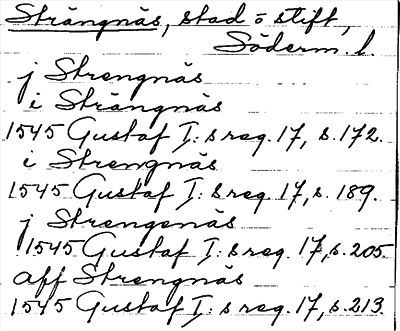 Strängnäs, stad o stift,
Söderm. l.
j Strengnäs
i Strängnäs
1545 Gustaf I: s reg. 17, s. 172.
i Strengnäs
1545 Gustaf I: s reg. 17, s. 189.
j Strengenäs
1545 Gustaf I: s reg. 17, s. 205.
aff Strengnäs
1545 Gustaf I: s reg. 17, s. 213.